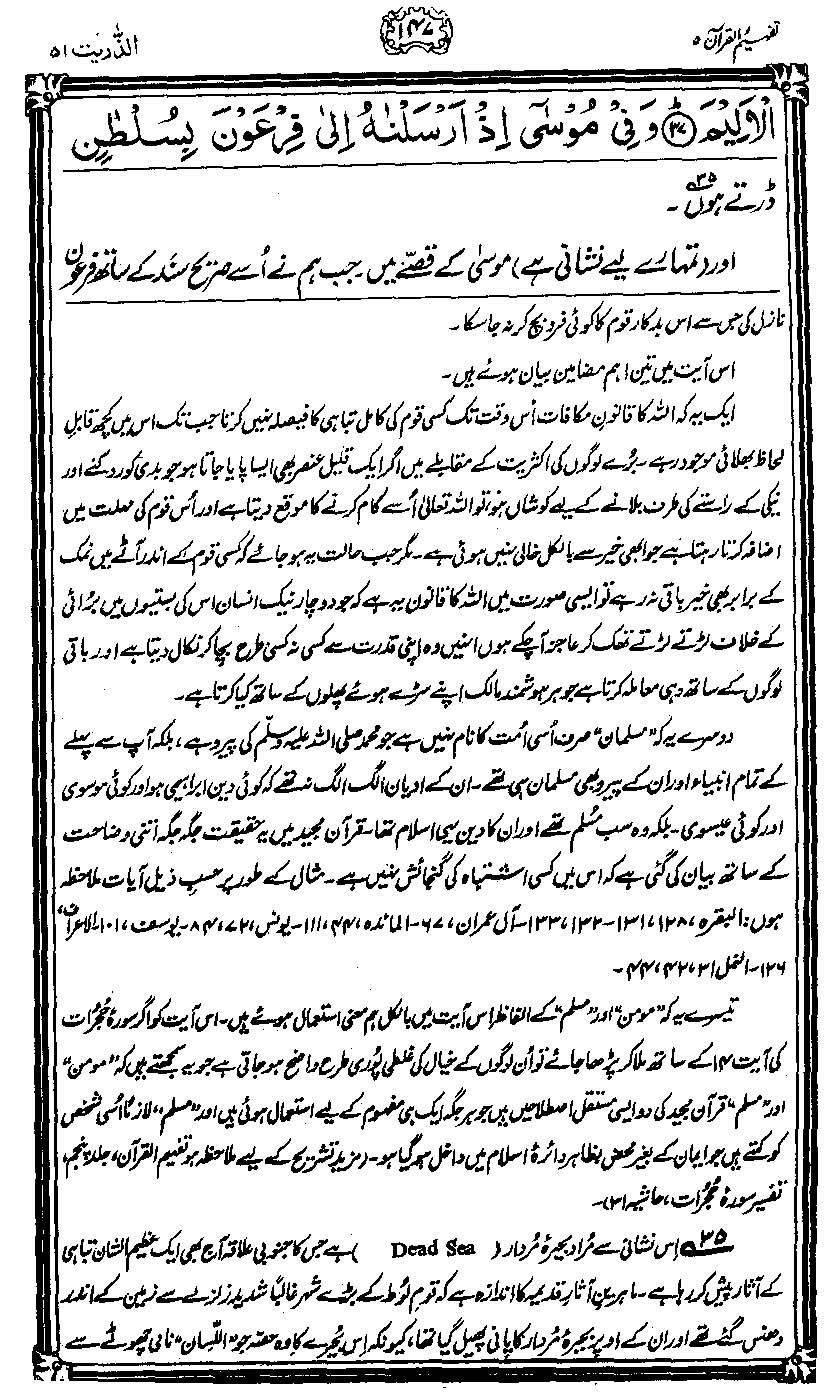 تفہیم القرآن ۵
۱۴۷
الذّٰریٰت ۵۱
الْاَلِیْمَ ﴿۳۷﴾ وَفِیْ مُوْسٰۤی اِذْ اَرْسَلْنٰهُ اِلٰی فِرْعَوْنَ بِسُلْطٰنٍ
ڈرتے ہوں ۳۵۔
اور (تمہارے لیے نشانی ہے) موسٰی کے قصّے میں۔ جب ہم نے اُسے صریح سَنَد کے ساتھ فرعون
نازل کی جس سے اس بدکار قوم کا کوئی فرد بچ کر نہ جا سکا۔
اس آیت میں تین اہم مضامین بیان ہوئے ہیں۔
ایک یہ کہ اللہ کا قانونِ مکافات اُس وقت تک کسی قوم کی کامل تباہی کا فیصلہ نہیں کرتا جب تک اس میں کچھ قابلِ
لحاظ بھلائی موجود رہے۔ بُرے لوگوں کی اکثریت کے مقابلے میں اگر ایک قلیل عنصر بھی ایسا پایا جاتا ہو جو بدی کو روکنے اور
نیکی کے راستے کی طرف بلانے کے لیے کوشاں ہو، تو اللہ تعالیٰ اُسے کام کرنے کا موقع دیتا ہے اور اُس قوم کی مہلت میں
اضافہ کرتا رہتا ہے جو ابھی خیر سے بالکل خالی نہیں ہوئی ہے۔ مگر جب حالت یہ ہو جائے کہ کسی قوم کے اندر آٹے میں نمک
کے برابر بھی خیر باقی نہ رہے تو ایسی صورت میں اللہ کا قانون یہ ہے کہ جو دو چار نیک انسان اس کی بستیوں میں بُرائی
کے خلاف لڑتے لڑتے تھک کر عاجز آچکے ہوں اُنہیں وہ اپنی قدرت سے کسی نہ کسی طرح بچا کر نکال دیتا ہے اور باقی
لوگوں کے ساتھ وہی معاملہ کرتا ہے جو ہر ہوشمند مالک اپنے سڑے ہوئے پھلوں کے ساتھ کیا کرتا ہے۔
دوسرے یہ کہ ”مسلمان“ صرف اُسی اُمت کا نام نہیں ہے جو محمد صلی اللہ علیہ وسلّم کی پیرو ہے، بلکہ آپ سے پہلے
کے تمام انبیاء اور ان کے پیرو بھی مسلمان ہی تھے۔ ان کے ادیان الگ الگ نہ تھے کہ کوئی دین ابراہیمی ہو اور کوئی موسوی
اور کوئی عیسوی۔ بلکہ وہ سب مُسلم تھے اور ان کا دین یہی اسلام تھا۔ قرآن مجید میں یہ حقیقت جگہ جگہ اتنی وضاحت
کے ساتھ بیان کی گئی ہے کہ اس میں کسی اشتباہ کی گنجائش نہیں ہے۔ مثال کے طور پر حسبِ ذیل آیات ملاحظہ
ہوں: البقرہ، ۱۲۸، ۱۳۱-۱۳۲، ۱۳۳-آل عمران، ۶۷-المائدہ، ۴۴، ۱۱۱-یونس، ۷۲، ۸۴-یوسف، ۱۰۱-الاعراف،
۱۲۶-النمل ۳۱، ۴۲، ۴۴۔
تیسرے یہ کہ ”مومن“ اور ”مسلم“ کے الفاظ اِس آیت میں بالکل ہم معنی استعمال ہوئے ہیں۔ اس آیت کو اگر سورۂ حُجُرات
کی آیت ۱۴ کے ساتھ ملا کر پڑھا جائے تو اُن لوگوں کے خیال کی غلطی پُوری طرح واضح ہو جاتی ہے جو یہ سمجھتے ہیں کہ ”مومن“
اور ”مسلم“ قرآن مجید کی دو ایسی مستقل اصطلاحیں ہیں جو ہر جگہ ایک ہی مفہوم کے لیے استعمال ہوئی ہیں اور ”مسلم“ لازماً اُسی شخص
کو کہتے ہیں جو ایمان کے بغیر محض بظاہر دائرۂ اسلام میں داخل ہو گیا ہو۔ (مزید تشریح کے لیے ملاحظہ ہو تفہیم القرآن، جلد پنجم،
تفسیر سورۂ حُجُرات، حاشیہ ۳۱)۔
۳۵ اِس نشانی سے مُراد بحیرۂ مُردار (Dead Sea) ہے جس کا جنوبی علاقہ آج بھی ایک عظیم الشان تباہی
کے آثار پیش کر رہا ہے۔ ماہرینِ آثارِ قدیمہ کا اندازہ ہے کہ قوم لُوط کے بڑے شہر غالباً شدید زلزلے سے زمین کے اندر
دھنس گئے تھے اور ان کے اوپر بحیرۂ مُردار کا پانی پھیل گیا تھا، کیونکہ اِس بُحیرے کا وہ حصّہ جو ”اللّسان“ نامی چھوٹے سے